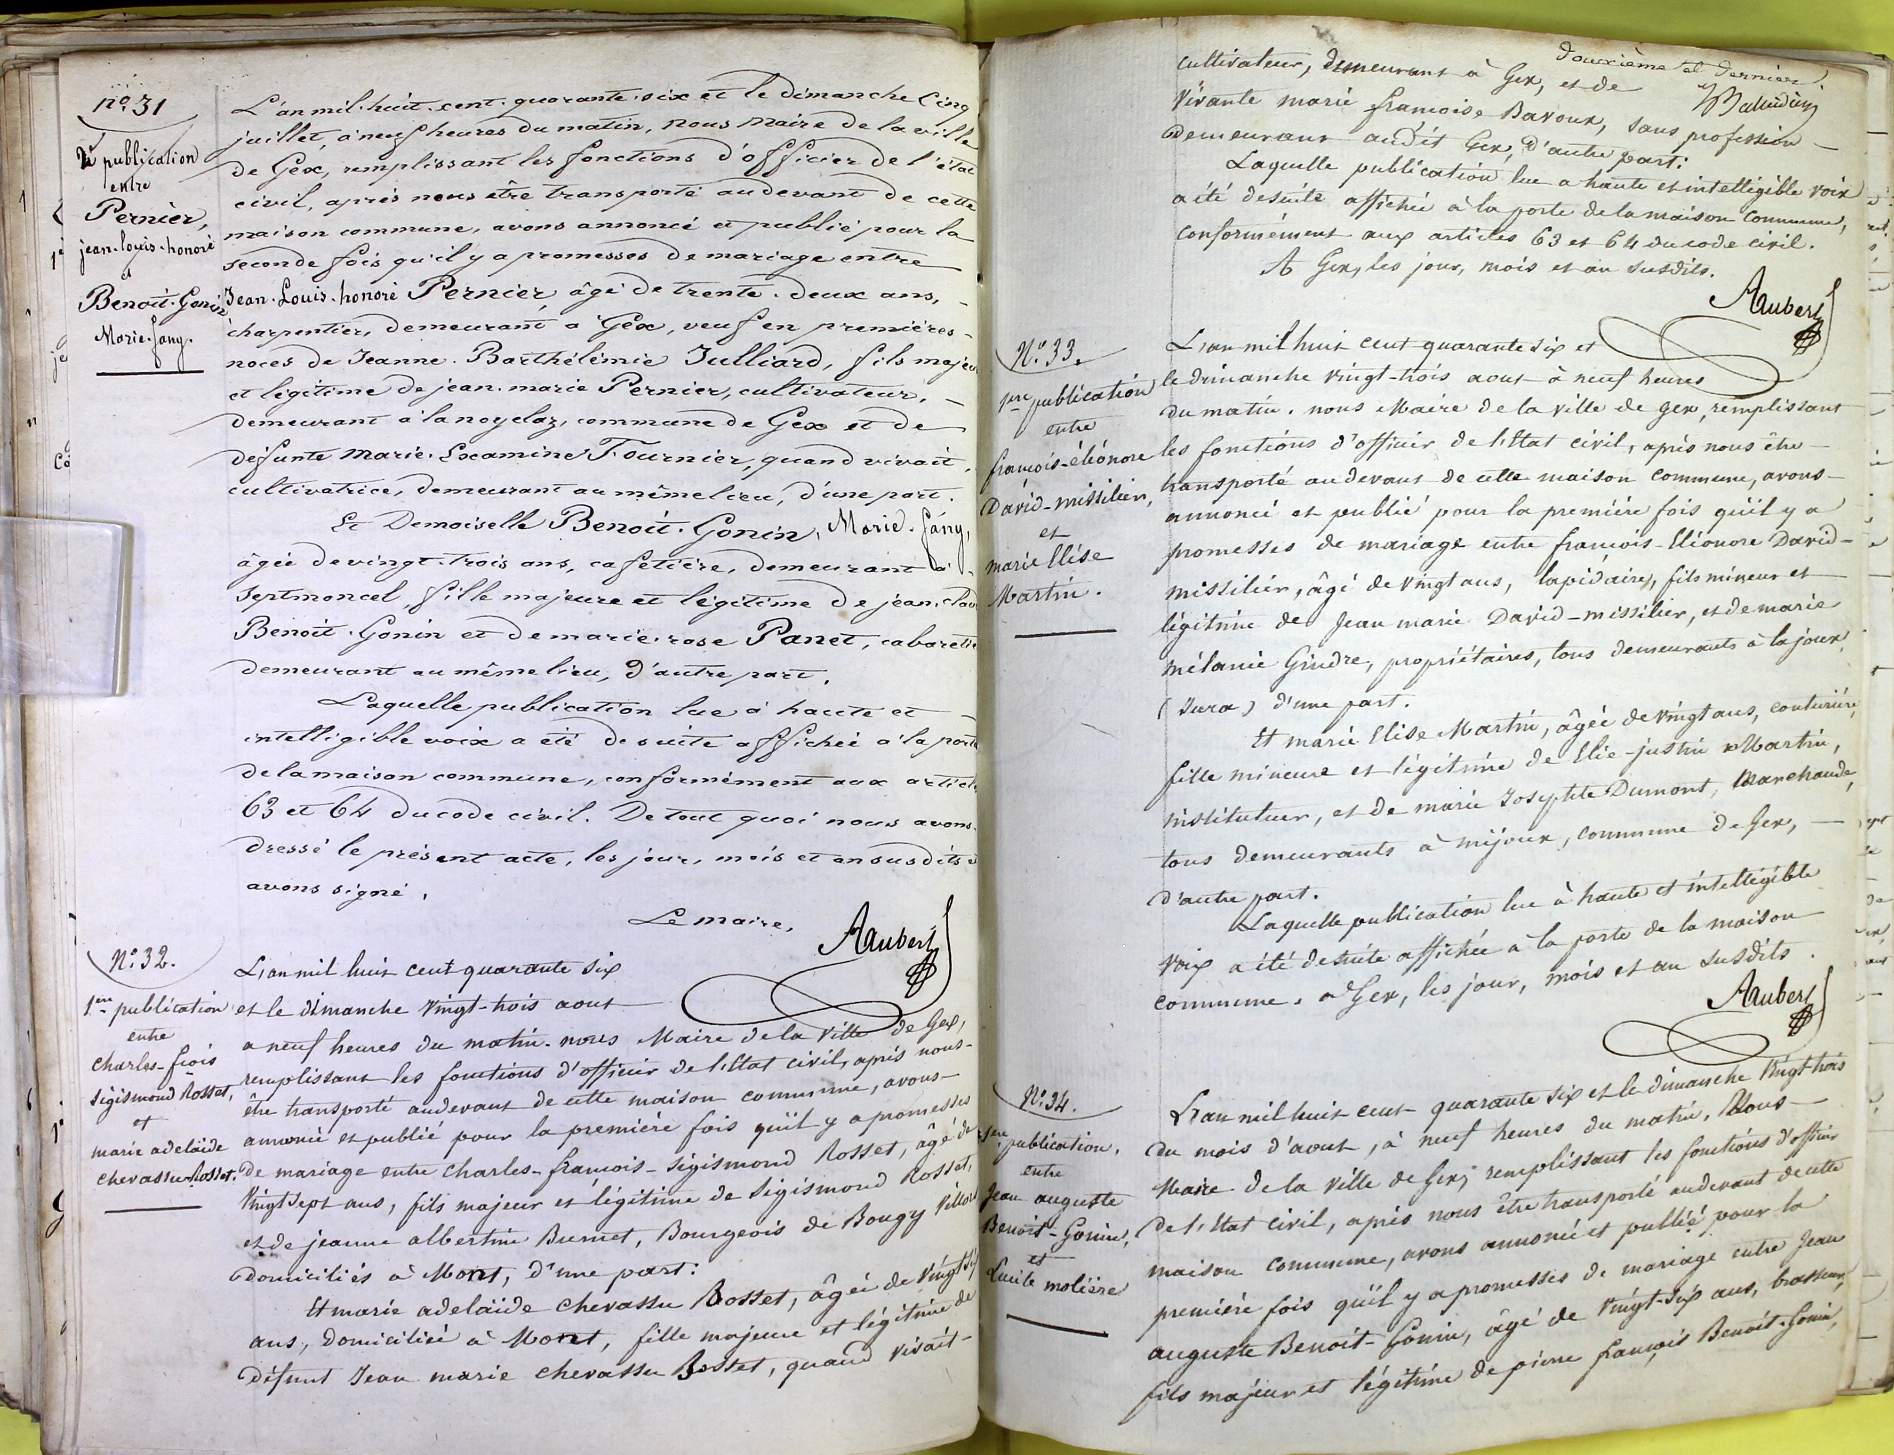 nº 31
2e publication
entre
Pernier,
jean-louis-honoré
&
Benoit-Gonin
Marie-fany.
L'an mil-huit-cent-quarante-six et le dimanche Cinq
juillet, à neuf heures du matin, nous Maire de la ville
de Gex, remplissant les fonctions d'officier de l'état
civil, après nous être transporté au devant de cette
maison commune, avons annoncé et publié pour la
seconde fois qu'il y a promesses de mariage entre
Jean-Louis-honoré Pernier, âgé de trente-deux ans,
charpentier, demeurant à Gex, veuf en premières
noces de Jeanne-Barthélémie Julliard, fils majeur
et légitime de jean-marie Pernier, cultivateur,
demeurant à lanoyelaz, commune de Gex et de
défunte Marie-Locamine Fournier, quand vivait,
cultivatrice, demeurant au même lieu, d'une part.
Et Demoiselle Benoit-Gonin, Marie-fány,
âgée de vingt-trois ans, cafetière, demeurant à
Septmoncel, fille majeure et légitime de jean-clau
Benoit-Gonin et de marie-rose Panet, cabareti
demeurant au même lieu, d'autre part.
Laquelle publication lue à haute et
intelligible voix a été de suite affichée à la porte
de la maison commune, conformément aux article
63 et 64 du code civil. De tout quoi nous avons
dressé le présent acte, les jour, mois et an susdits e
avons signé.
Le maire,
Aaubert
Nº 32.
1ere publication
entre
Charles-frois
Sigismond Rosset,
et
marie adelaïde
chevassu Rosset.
L'an mil huit cent quarante six
et le dimanche vingt-trois aout
a neuf heures du matin. nous Maire de la ville de Gex,
remplissant les fonctions d'officier de l'Etat civil, après nous
être transporté au devant de cette maison commune, avons
annoncé et publié pour la première fois qu'il y a promesses
de mariage entre Charles-françois-Sigismond Rosset, âgé de
vingt sept ans, fils majeur et légitime de Sigismond Rosset,
et de jeanne albertine Burnet, Bourgeois de Bougy Villars
domiciliés à Mont, d'une part:
Et marie adelaïde chevassu Rosset, âgée de vingt six
ans, domiciliée à Mont, fille majeure et légitime de
défunt Jean marie chevassu Rosset, quand vivait
douxième et dernier
cultivateur, demeurant à Gex, et de
vivante marie françoise Bavoux, sans profession
demeurant audit Gex, d'autre part:
Laquelle publication lue a haute et intelligible voix
a été desuite affichée à la porte de la maison commune,
conformément aux articles 63 et 64 du code civil.
A Gex, les jour, mois et an susdits.
Aaubert
Nº 33.
1ere publication
entre
françois-éléonore
David-missilier,
et
marie Elise
Martin.
L'an mil huit cent quarante six et
le dimanche vingt-trois aout à neuf heures
du matin. nous Maire de la ville de gex, remplissant
les fonctions d'officier de l'Etat civil, après nous être
transporté au devant de cette maison commune, avons
annoncé et publié pour la première fois qu'il y a
promesses de mariage entre françois-Eléonore David-
missilier, âgé de vingt ans, lapidaire, fils mineur et
légitime de Jean marie David-missilier, et de marie
mélanie Gindre, propriétaires, tous demeurants à lajoux,
(Jura) d'une part.
Et marie Elise Martin, âgée de vingt ans, couturière,
fille mineure et légitime de Elie-justin Martin,
instituteur, et de marie Josephte Dumont, Marchande,
tous demeurants à mijoux, commune de Gex,
d'autre part.
Laquelle publication lue à haute et intelligible
voix a été desuite affichée à la porte de la maison
commune. a Gex, les jour, mois et an susdits.
Aaubert
Nº 34.
1ere publication,
entre
Jean auguste
Benoit-Gonin,
et
Lucile molière
L'an mil huit cent quarante six et le dimanche vingt-trois
du mois d'aout, à neuf heures du matin, Nous
Maire de la ville de Gex, remplissant les fonctions d'officier
de l'Etat civil, après nous être transporté au devant de cette
maison commune, avons annoncé et publié pour la
première fois qu'il y a promesses de mariage entre Jean
auguste Benoit-Gonin, âgé de vingt-six ans, brasseur,
fils majeur et légitime de pierre françois Benoit-Gonin,